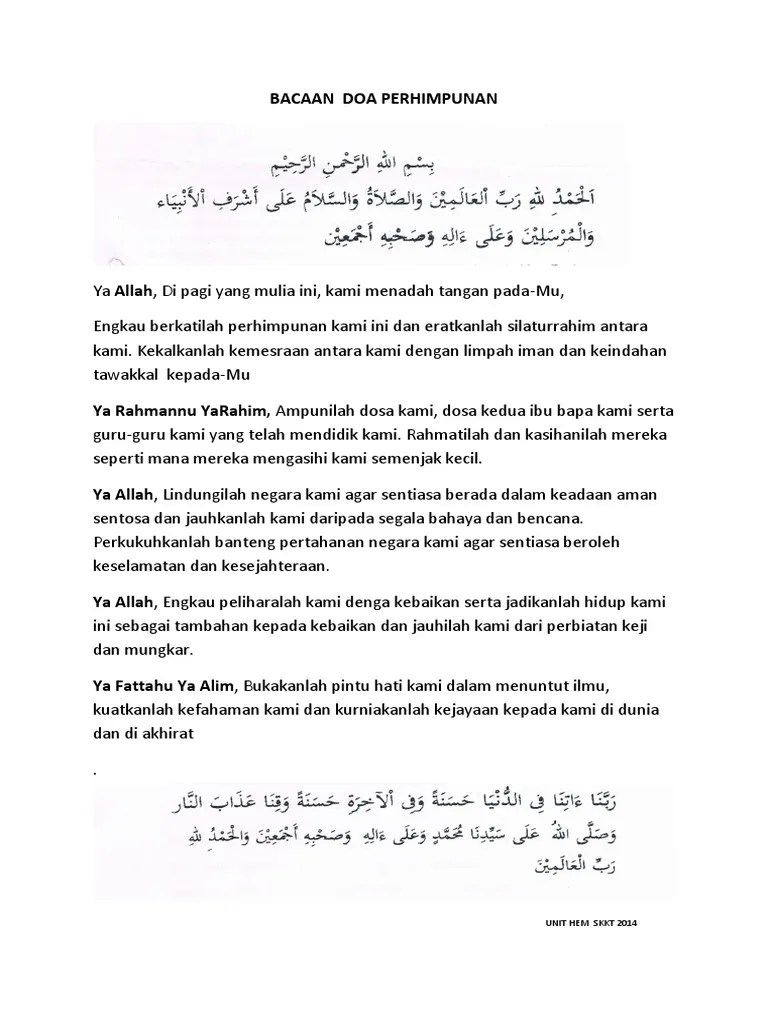 BACAAN DOA PERHIMPUNAN
بِسْمِ اللهِ الرَّحْمنِ الرَّحِيْمِ
اَلْحَمْدُ لِلهِ رَبِّ الْعَالَمِيْنَ وَالصَّلاَةُ وَالسَّلاَمُ عَلَى أَشْرَفِ الْأَنْبِيَاء
وَالْمُرْسَلِيْنَ وَعَلَى ءَالِهِ وَصَحْبِهِ أَجْمَعِيْن
Ya Allah, Di pagi yang mulia ini, kami menadah tangan pada-Mu,
Engkau berkatilah perhimpunan kami ini dan eratkanlah silaturrahim antara
kami. Kekalkanlah kemesraan antara kami dengan limpah iman dan keindahan
tawakkal kepada-Mu
Ya Rahmannu YaRahim, Ampunilah dosa kami, dosa kedua ibu bapa kami serta
guru-guru kami yang telah mendidik kami. Rahmatilah dan kasihanilah mereka
seperti mana mereka mengasihi kami semenjak kecil.
Ya Allah, Lindungilah negara kami agar sentiasa berada dalam keadaan aman
sentosa dan jauhkanlah kami daripada segala bahaya dan bencana.
Perkukuhkanlah banteng pertahanan negara kami agar sentiasa beroleh
keselamatan dan kesejahteraan.
Ya Allah, Engkau peliharalah kami denga kebaikan serta jadikanlah hidup kami
ini sebagai tambahan kepada kebaikan dan jauhilah kami dari perbiatan keji
dan mungkar.
Ya Fattahu Ya Alim, Bukakanlah pintu hati kami dalam menuntut ilmu,
kuatkanlah kefahaman kami dan kurniakanlah kejayaan kepada kami di dunia
dan di akhirat
.
رَبَّنَا ءَاتِنَا فِى الدُّنْيَا حَسَنَةً وَفِى الْآخِرَةِ حَسَنَةً وَقِنَا عَذَابَ النَّار
وَصَلَّى اللهُ عَلَى سَيِّدِنَا مُحَمَّدٍ وَعَلَى ءَالِهِ وَصَحْبِهِ أَجْمَعِيْنَ وَالْحَمْدُ لِلهِ
رَبِّ الْعَالَمِيْنَ
UNIT HEM SKKT 2014